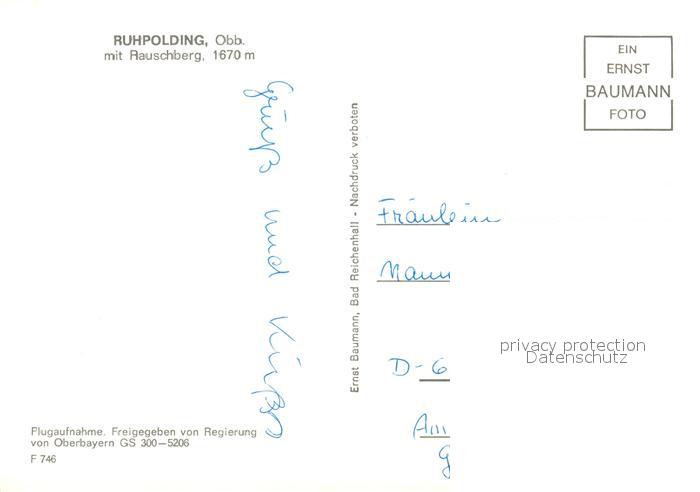 RUHPOLDING, Obb.
mit Rauschberg, 1670 m
EIN
ERNST
BAUMANN
FOTO
Gruß und Küße
Ernst Baumann, Bad Reichenhall - Nachdruck verboten
Fräulein
D-6
privacy protection
Datenschutz
Flugaufnahme. Freigegeben von Regierung
von Oberbayern GS 300—5206
F 746